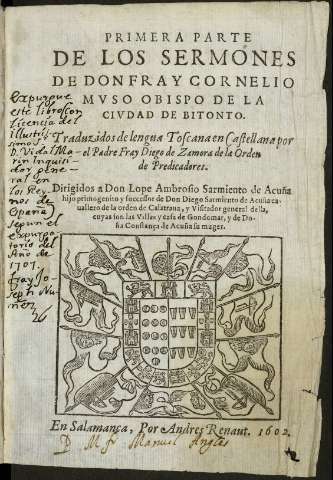 PRIMERA PARTE
DE LOS SERMONES
DE DON FRAY CORNELIO
MVSO OBISPO DE LA
CIVDAD DE BITONTO.
Traduzidos de lengua Toscana en Castellana por
el Padre Fray Diego de Zamora de la Orden
de Predicadores.
Dirigidos a Don Lope Ambrosio Sarmiento de Acuña
hijo primogenito y sucessor de Don Diego Sarmiento de Acuña ca-
uallero de la orden de Calatraua, y Visitador general de lla,
cuyas son las Villas y casa de Gondomar, y de Do-
ña Constança de Acuña su muger.
Expurgue
este libro con
licencia del
Illustris
simo s.
D. Vidal Ma
rin Inquisi
dor gene
ral en
los Rey-
nos de
España
segun el
expurga
torio del
Año de
1707.
fray Jo-
seph Nu
ñez
En Salamança, Por Andres Renaut. 1602.
D. M. fr. Manuel Anglès